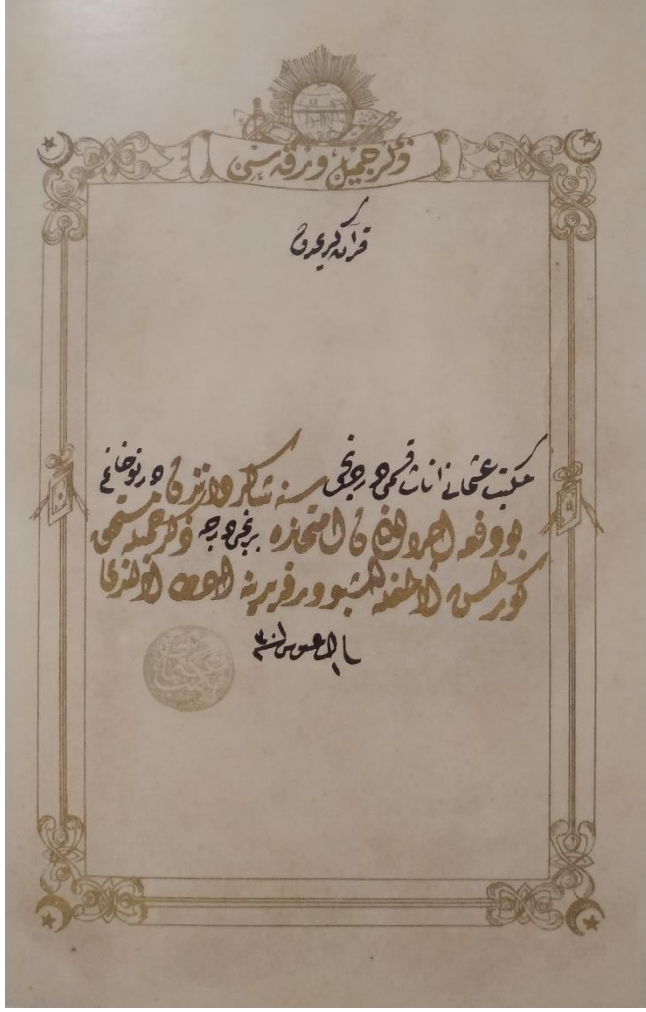 ذكر جميل ورقه سى
قرآن كريمدن
مكتب عثمانى اناث قسمى دردنجى سنه شاكرداندن درنو خانم
بو دفعه اجرا اولنان امتحانده برنجى درجه ذكر جميله مستحق
كورلمش اولمغله اشبو ورقه يدينه اعطا اولندى
اغستوس